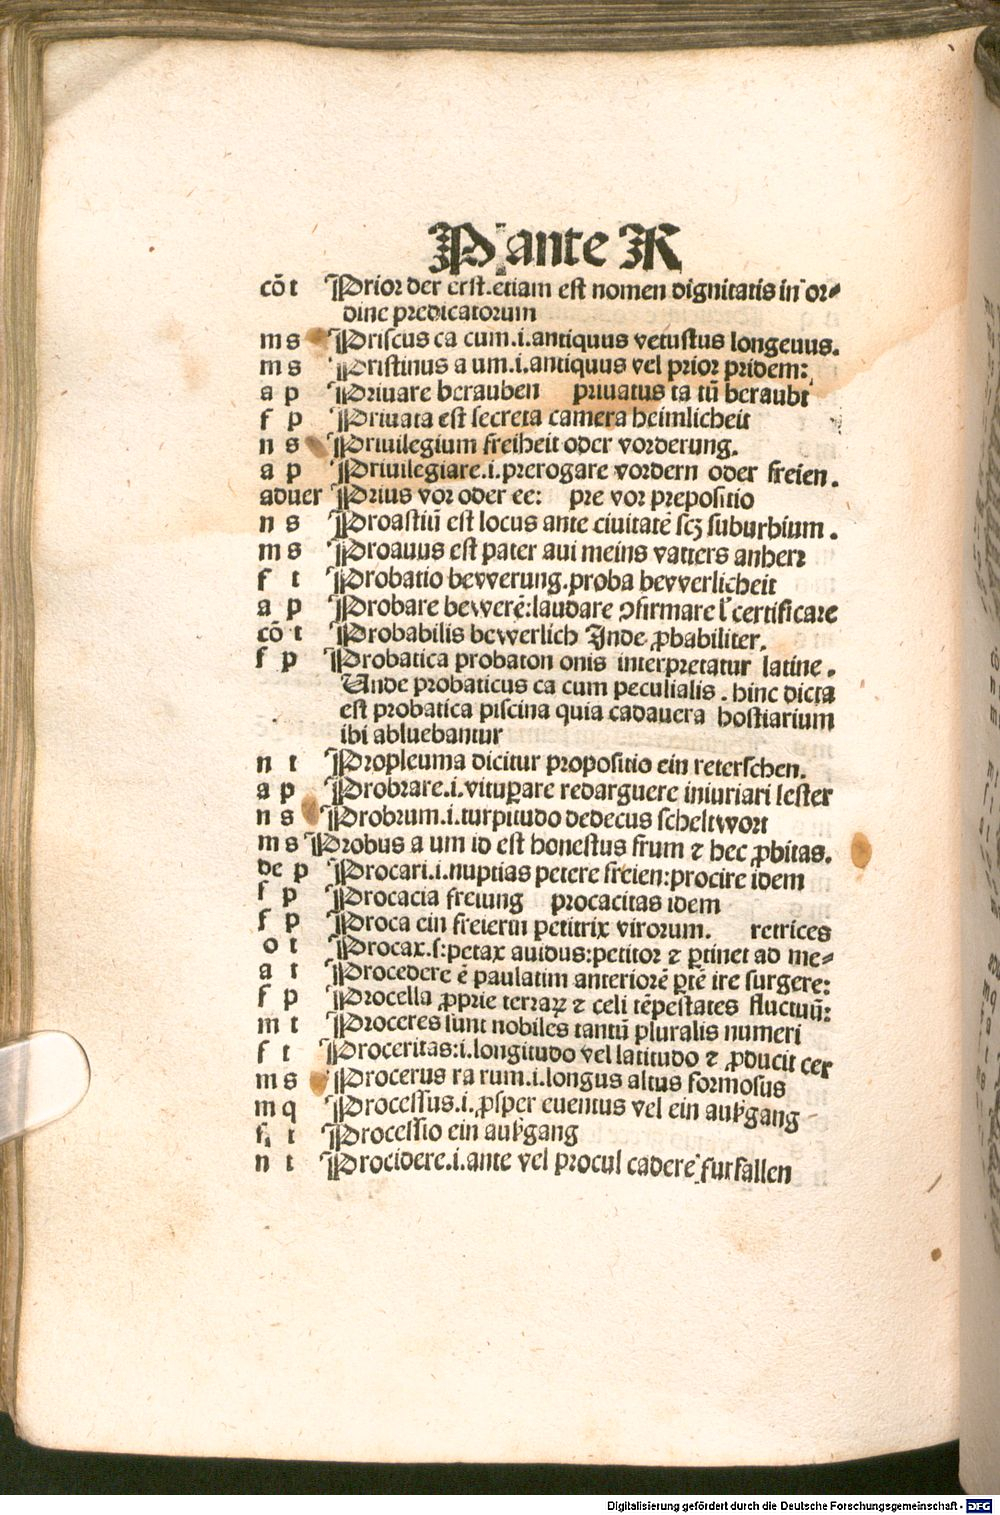 P ante R
cõ t Prior der erst.etiam est nomen dignitatis in or⸗
dine predicatorum
m s Priscus ca cum.i.antiquus vetustus longeuus.
m s Pristinus a um.i.antiquus vel prior pridem:
a p Priuare berauben priuatus ta tũ beraubt
f p Priuata est secreta camera heimlicheit
n s Priuilegium freiheit oder vorderung.
a p Priuilegiare.i.prerogare vordern oder freien.
aduer Prius vor oder ee: pre vor prepositio
n s Proastiũ est locus ante ciuitatẽ scꝫ suburbium.
m s Proauus est pater aui meins vatters anherr
f t Probatio bewerung.proba bewerlicheit
a p Probare bewerẽ:laudare ꝯfirmare l̉ certificare
cõ t Probabilis bewerlich Inde ꝓbabiliter.
f p Probatica probaton onis interpretatur latine.
Unde probaticus ca cum peculialis.hinc dicta
est probatica piscina quia cadauera hostiarium
ibi abluebantur
n t Propleuma dicitur propositio ein reterschen.
a p Probrare.i.vituꝑare redarguere iniuriari lester
n s Probrum.i.turpitudo dedecus scheltwort
m s Probus a um id est honestus frum ⁊ hec ꝓbitas.
de p Procari.i.nuptias petere freien:procire idem
f p Procacia freiung procacitas idem
f p Proca ein freierin petitrix virorum. retrices
o t Procax.s:petax auidus:petitor ⁊ ꝑtinet ad me⸗
a t Procedere ẽ paulatim anteriorẽ ꝑtẽ ire surgere:
f p Procella ꝓprie terraꝝ ⁊ celi tẽpestates fluctuũ:
m t Proceres sunt nobiles tantũ pluralis numeri
f t Proceritas:i.longitudo vel latitudo ⁊ ꝓducit cer
m s Procerus ra rum.i.longus altus formosus
m q Processus.i.ꝓsper euentus vel ein außgang
f t Processio ein außgang
n t Procidere.i.ante vel procul cadere furfallen
Digitalisierung gefördert durch die Deutsche Forschungsgemeinschaft - DFG